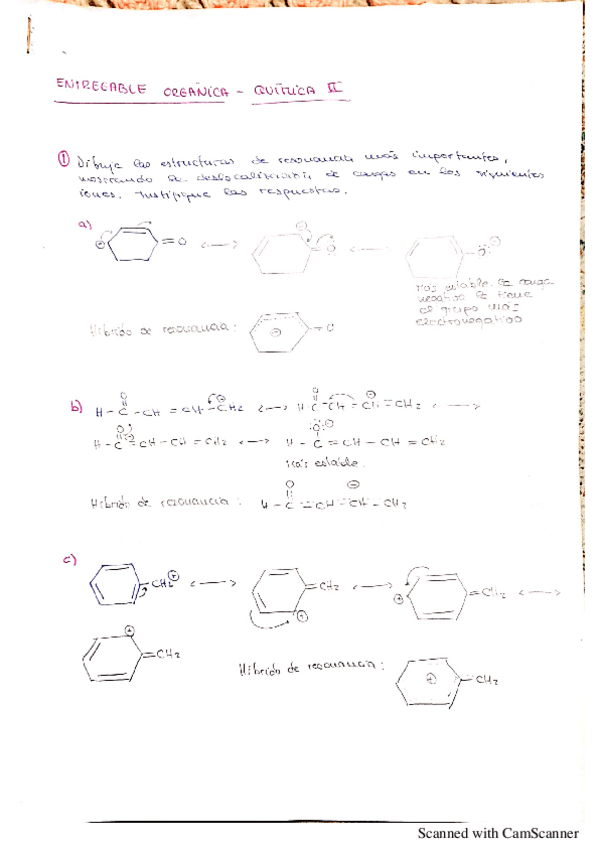 ENTREGABLE ORGÁNICA - QUÍMICA II
① Dibuje las estructuras de resonancia más importantes,
mostrando la deslocalización de cargas en los siguientes
iones. Justifique las respuestas.
a)
⊖ =O <—> ⊖ =O <—> -O⊖
Más estable. La carga
negativa la tiene
el grupo más
electronegativo
Híbrido de resonancia: ⊖
b) H-C-CH=CH-CH2 <—> H-C-CH-CH=CH2 <—>
O O ⊖
H-C-CH-CH=CH2 <—> H-C=CH-CH=CH2
Más estable.
Híbrido de resonancia: H-C=CH-CH-CH2
O ⊖
c)
CH2⊕ <—> =CH2 ⊕ <—> ⊕ =CH2 <—>
⊕ =CH2
Híbrido de resonancia: ⊕ -CH2
Scanned with CamScanner